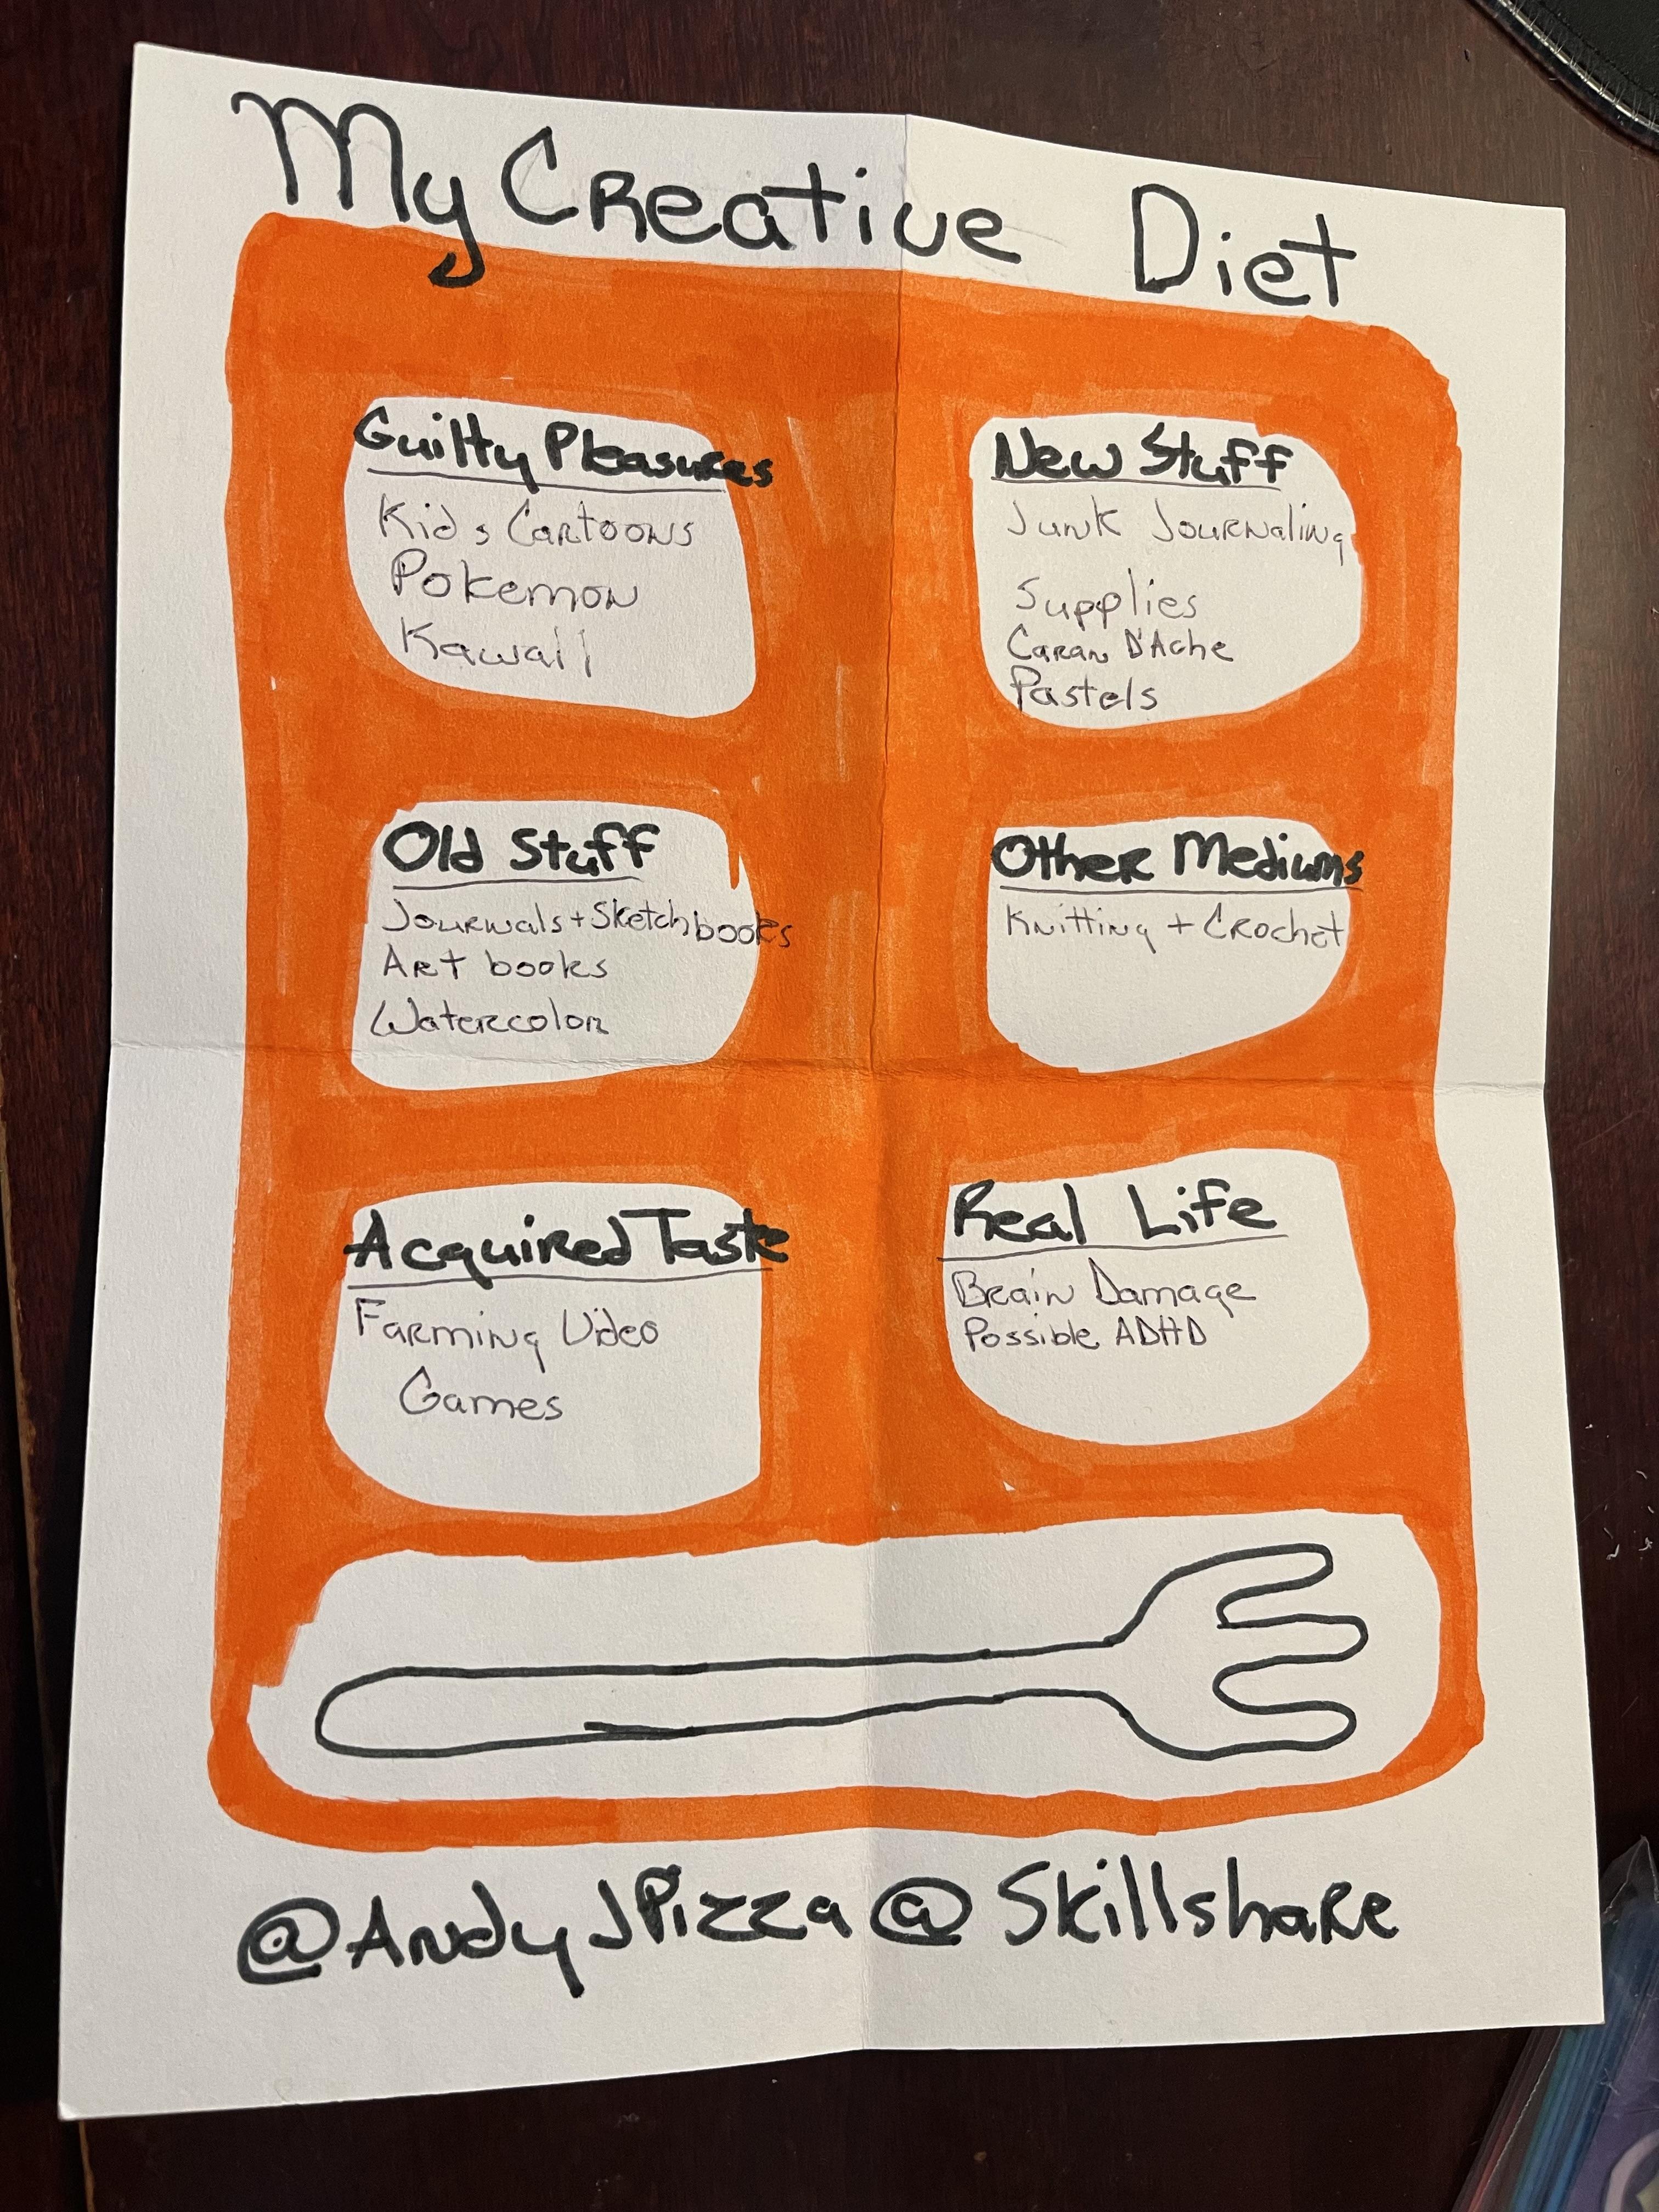 My Creative Diet
Guilty Pleasures
Kids Cartoons
Pokemon
Kawaii
New Stuff
Junk Journaling
Supplies
Caran D'Ache
Pastels
Old Stuff
Journals + Sketchbooks
Art books
Watercolor
Other Mediums
Knitting + Crochet
Acquired Taste
Farming Video
Games
Real Life
Brain Damage
Possible ADHD
@AndyJPizza @Skillshare